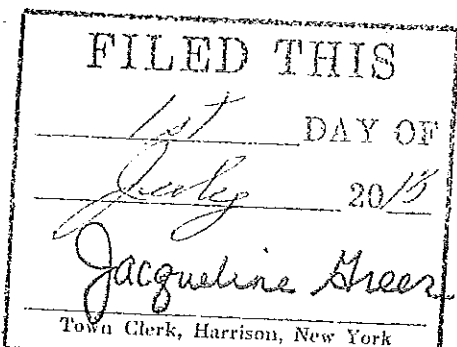 FILED THIS
1st DAY OF
July 2015
Jacqueline Greer
Town Clerk, Harrison, New York